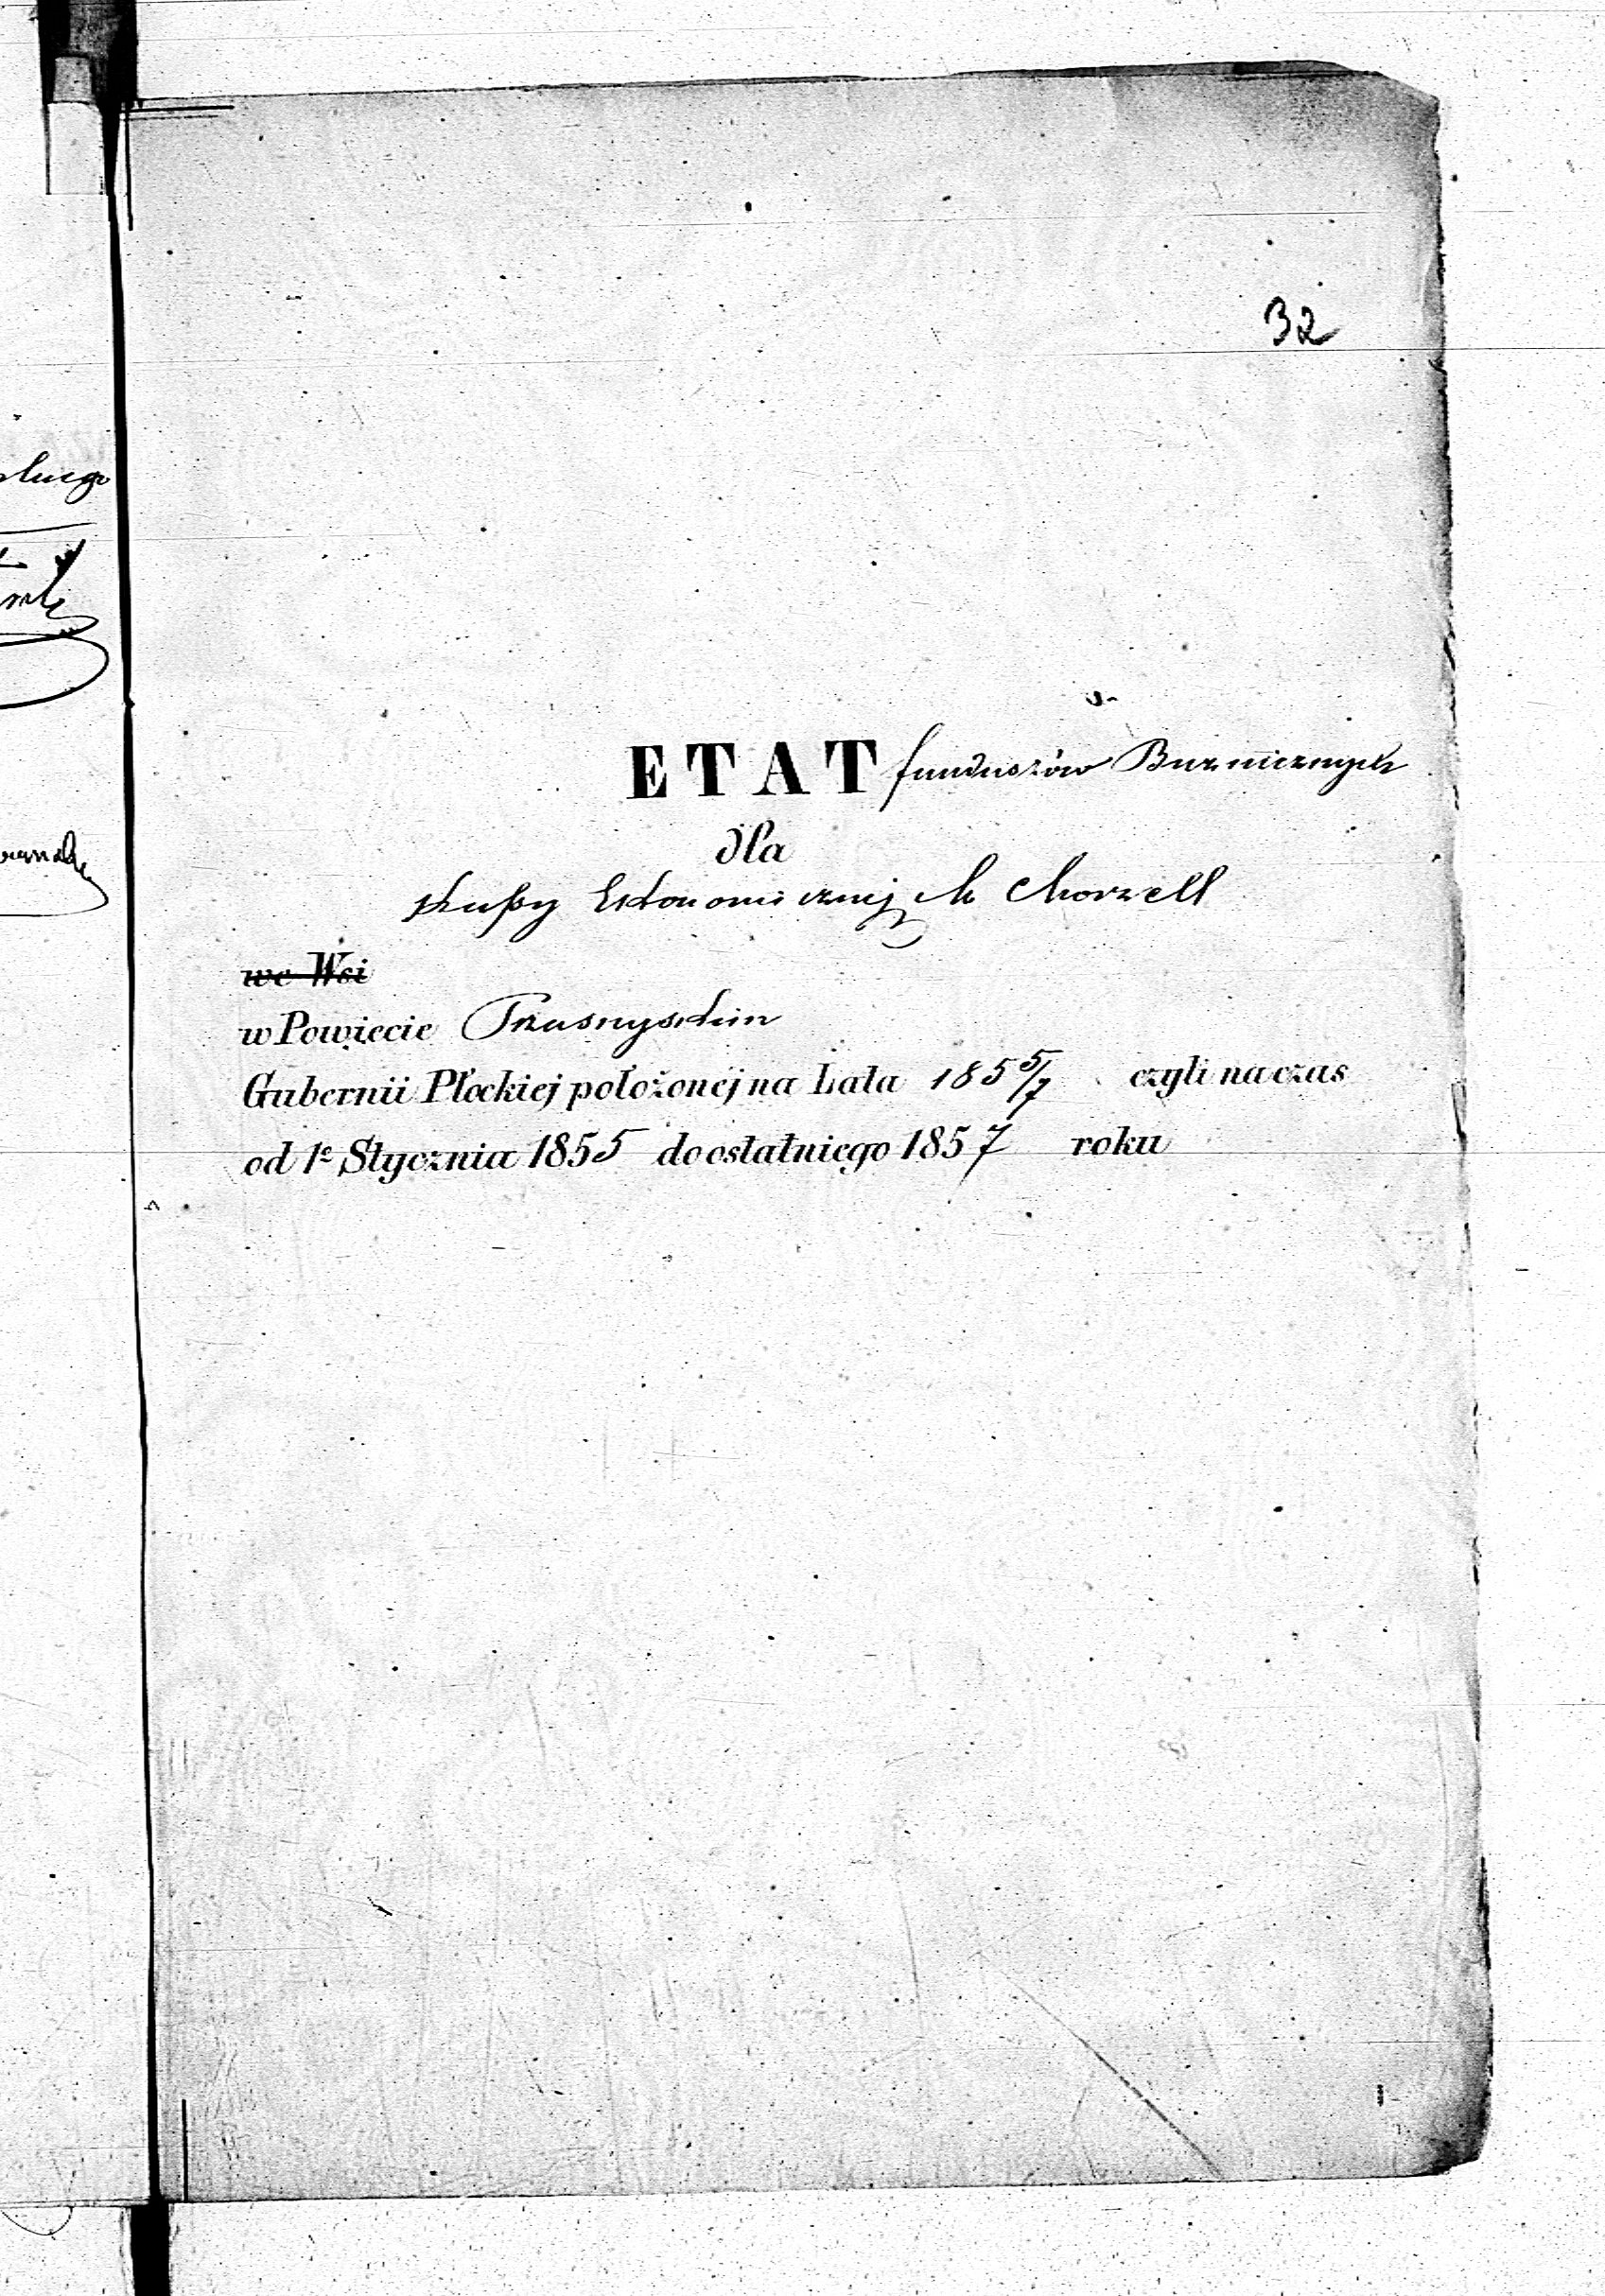 32
ETAT funduszów Bużnicznych
dla
Służby Ekonomicznej M Chorzell
we Wsi
w Powiecie Przasnyskim
Gubernii Płockiej położonej na Lata 185 5/7 czyli na czas
od 1º Stycznia 1855 do ostatniego 1857 roku